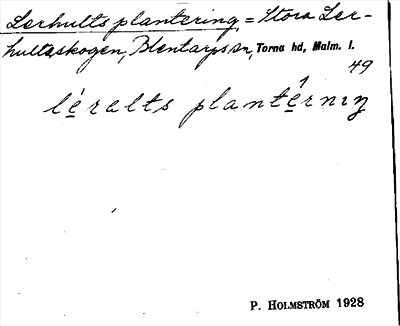 Lerhults plantering, = Stora Ler-
hultaskogen, Blentarps sn, Torna hd, Malm. l.
49
léralts plantérnıŋ
P. HOLMSTRÖM 1928